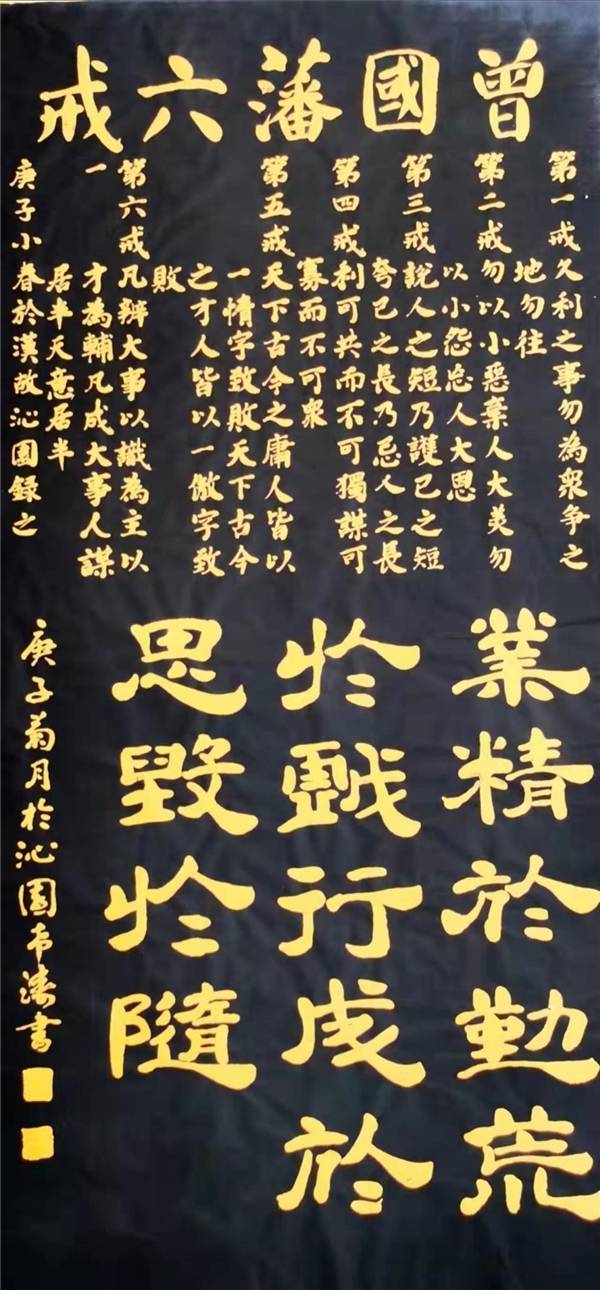 曾國藩六戒
第一戒久利之事勿為衆争之
地勿往
第二戒勿以小惡棄人大美勿
以小怨忘人大恩
第三戒說人之短乃護己之短
夸己之長乃忌人之長
第四戒利可共而不可獨謀可
寡而不可衆
第五戒天下古今之庸人皆以
一惰字致敗天下古今
之才人皆以一傲字致
敗
第六戒凡辦大事以識為主以
一才為輔凡成大事人謀
居半天意居半
庚子小春於漢故沁園錄之
業精於勤荒
於戲行成於
思毀於隨
庚子菊月於沁園書